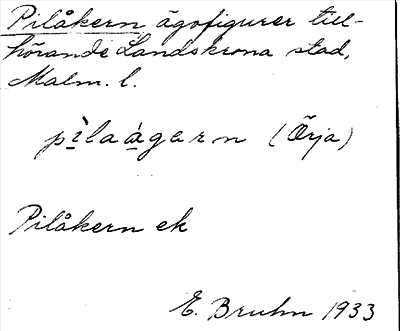 Pilåkern ägofigurer till-
hörande Landskrona stad,
Malm. l.
pìlaágern (Örja)
Pilåkern ek
E. Bruhn 1933